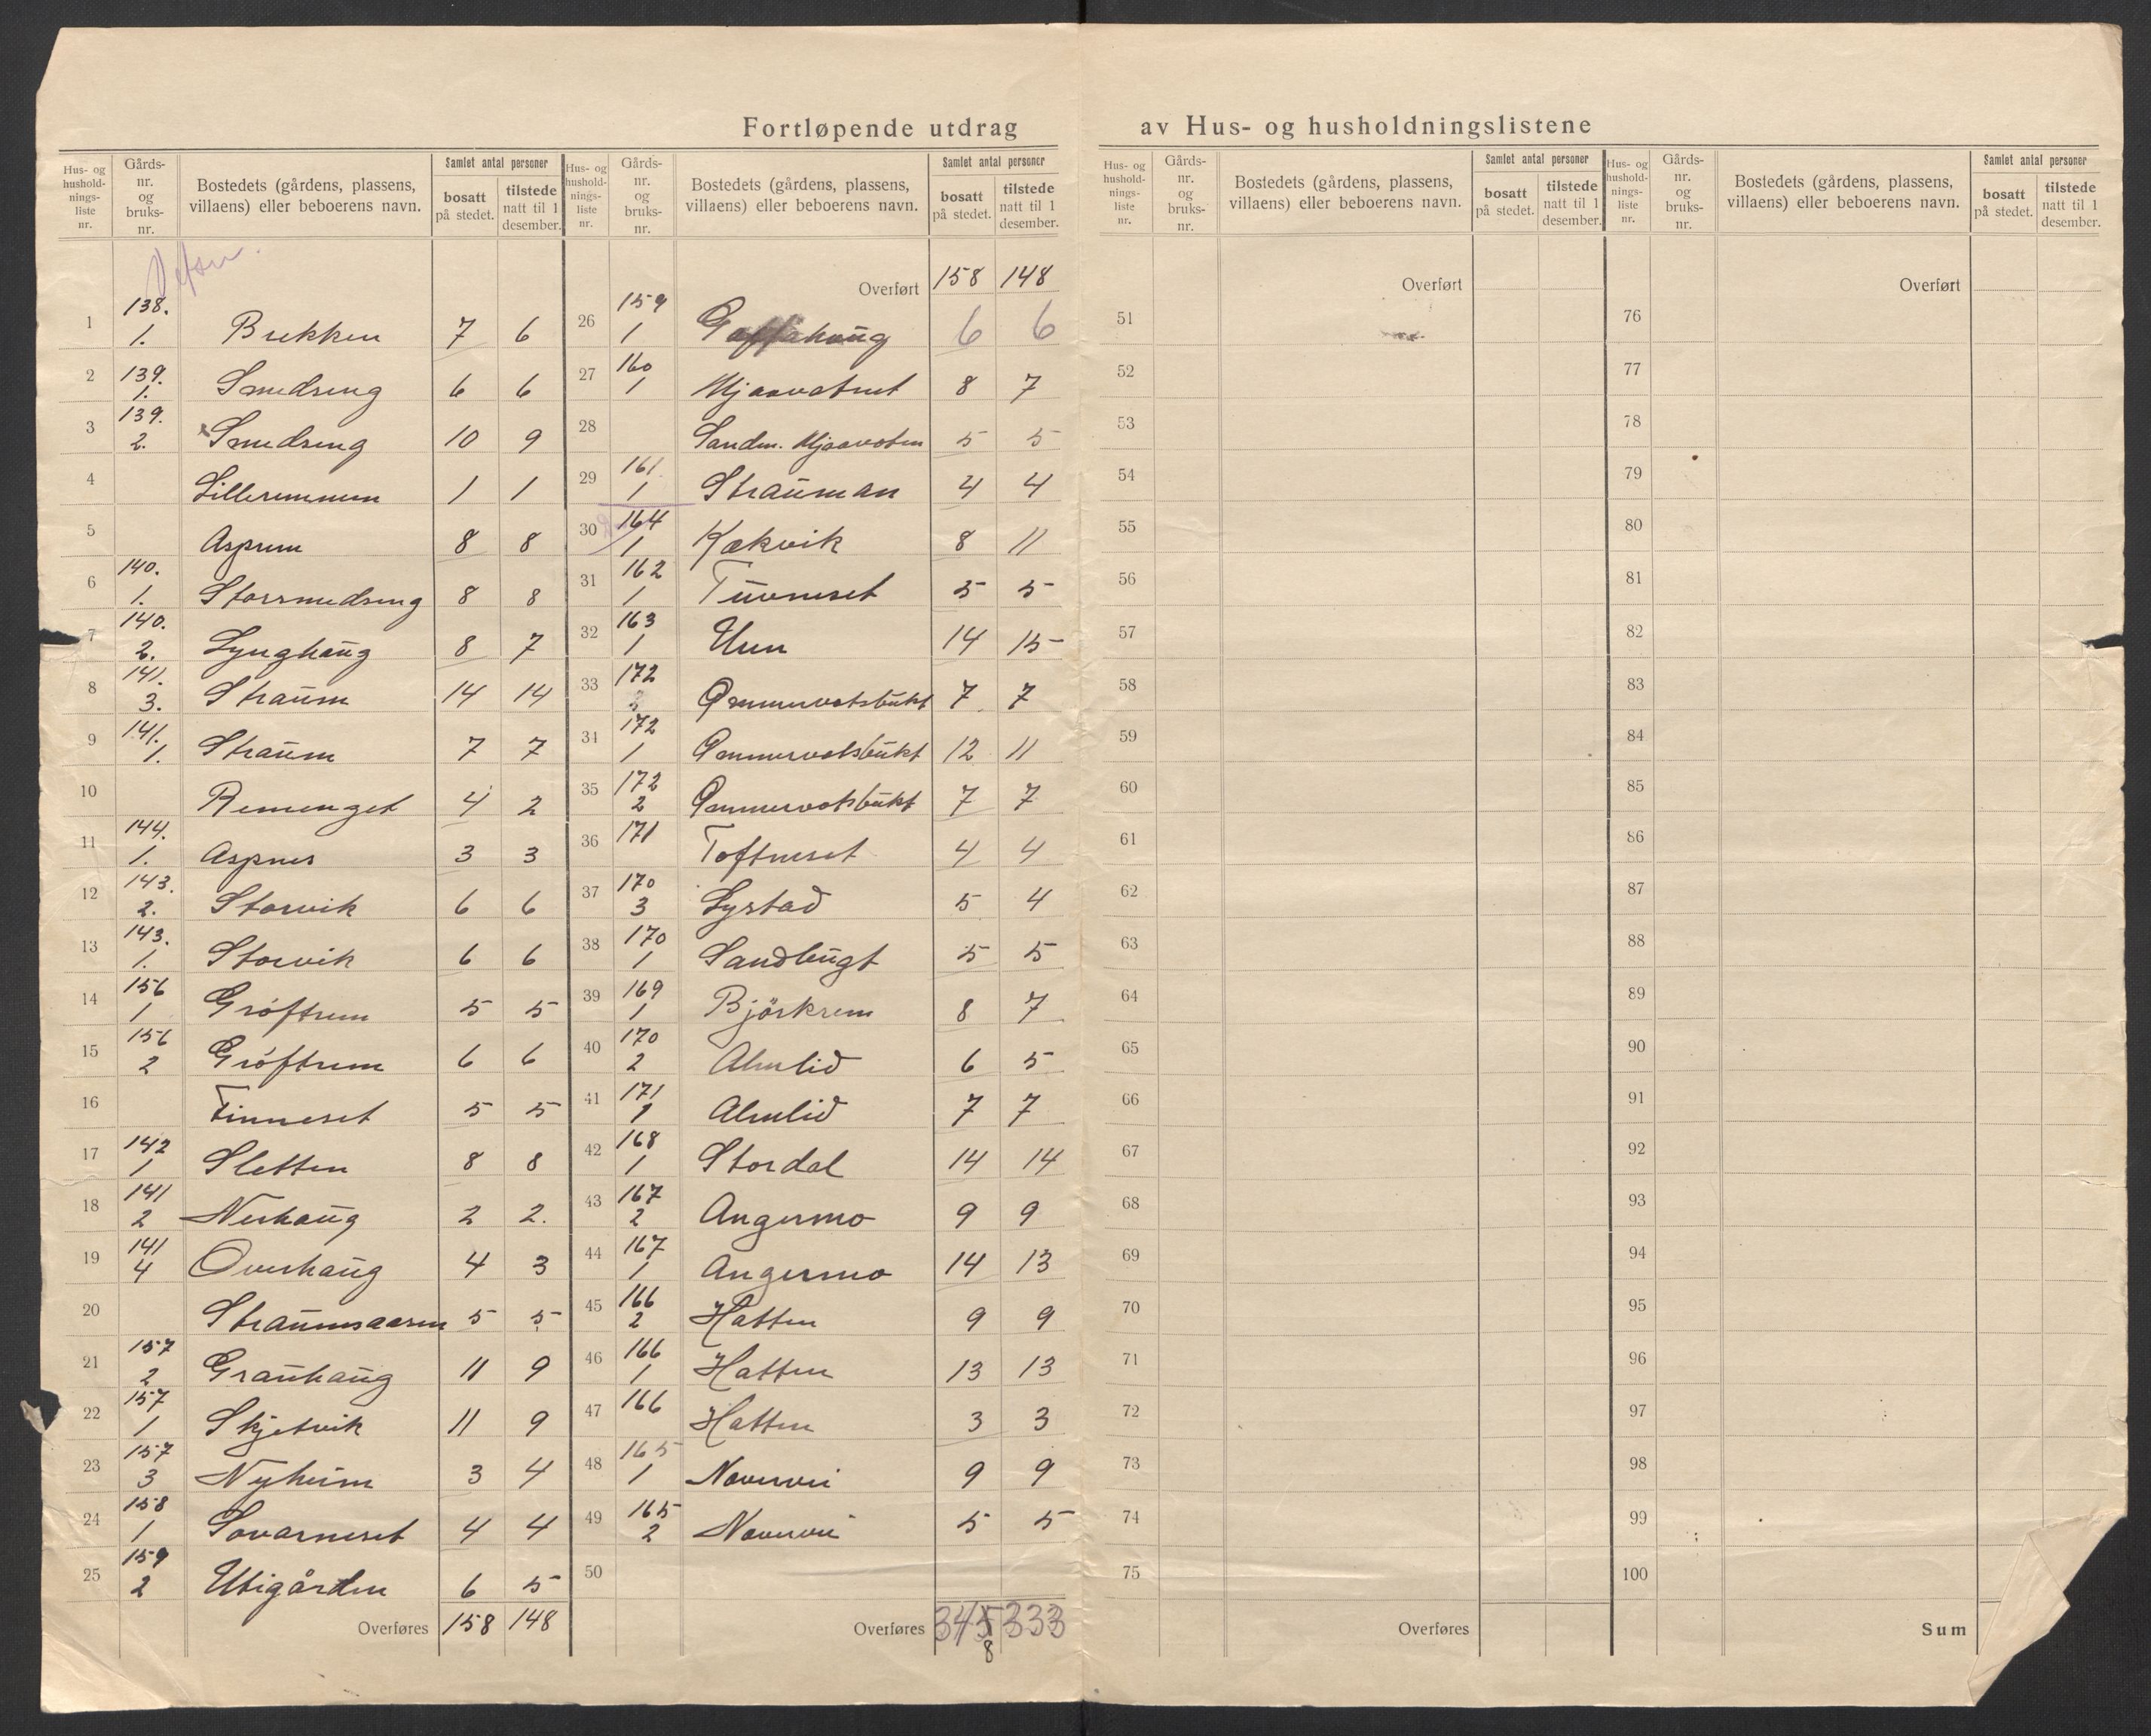 Fortløpende utdrag av Hus- og husholdningslistene
Hus- og hushold-nings-liste nr. | Gårds-nr. og bruks-nr. | Bostedets (gårdens, plassens, villaens) eller beboerens navn. | Samlet antal personer | bosatt på stedet. | tilstede natt til 1 desember.
1 138. 1. Brekken 7 6
2 139. 1. Smedseng 6 6
3 139. 2. Smedseng 10 9
4 Lilleremmen 1 1
5 Asprem 8 8
6 140. 1. Storsmedseng 8 8
7 140. 2. Lynghaug 8 7
8 141. 3. Straum 14 14
9 141. 1. Straum 7 7
10 Remenget 4 2
11 144. 1. Aspnes 3 3
12 143. 2. Storvik 6 6
13 143. 1. Storvik 6 6
14 156 1 Grøftrem 5 5
15 156 2 Grøftrem 6 6
16 Finneset 5 5
17 142 1 Sletten 8 8
18 141 2 Nerhaug 2 2.
19 141 4 Overhaug 4 3
20 Straumsaasen 5 5
21 157 2 Grauhaug 11 9
22 157 1 Skjetvik 11 9
23 157 3 Nyheim 3 4
24 158 1 Sovarneset 4 4
25 159 2 Utigården 6 5
Overføres 158 148
Hus- og hushold-nings-liste nr. | Gårds-nr. og bruks-nr. | Bostedets (gårdens, plassens, villaens) eller beboerens navn. | Samlet antal personer | bosatt på stedet. | tilstede natt til 1 desember.
Overført 158 148
26 159 1 6 6
27 160 1 Mjaavatnet 8 7
28 Sandm. Mjaavoten 5 5
29 161 1 Strauman 4 4
30 164 1 Kækvik 8 11
31 162 1 Tuvneset 5 5
32 163 1 Unn 14 15
33 172 3 Ømmervatsbukt 7 7
31 172 1 Ømmervatsbukt 12 11
35 172 2 Ømmervatsbukt 7 7
36 171 Toftneset 4 4
37 170 3 Lystad 5 4
38 170 1 Sandbugt 5 5
39 169 1 Bjørkrem 8 7
40 170 2 Almlid 6 5
41 171 1 Almlid 7 7
42 168 1 Stordal 14 14
43 167 2 Angermo 9 9
44 167 1 Angermo 14 13
45 166 2 Hatten 9 9
46 166 1 Hatten 13 13
47 166 Hatten 3 3
48 165 1 Navervei 9 9
49 165 2 Navervei 5 5
50
Overføres 345 8 333
Hus- og hushold-nings-liste nr. | Gårds-nr. og bruks-nr. | Bostedets (gårdens, plassens, villaens) eller beboerens navn. | Samlet antal personer | bosatt på stedet. | tilstede natt til 1 desember.
Overført
51
52
53
54
55
56
57
58
59
60
61
62
63
64
65
66
67
68
69
70
71
72
73
74
75
Overføres
Hus- og hushold-nings-liste nr. | Gårds-nr. og bruks-nr. | Bostedets (gårdens, plassens, villaens) eller beboerens navn. | Samlet antal personer | bosatt på stedet. | tilstede natt til 1 desember.
Overført
76
77
78
79
80
81
82
83
84
85
86
87
88
89
90
91
92
93
94
95
96
97
98
99
100
Sum